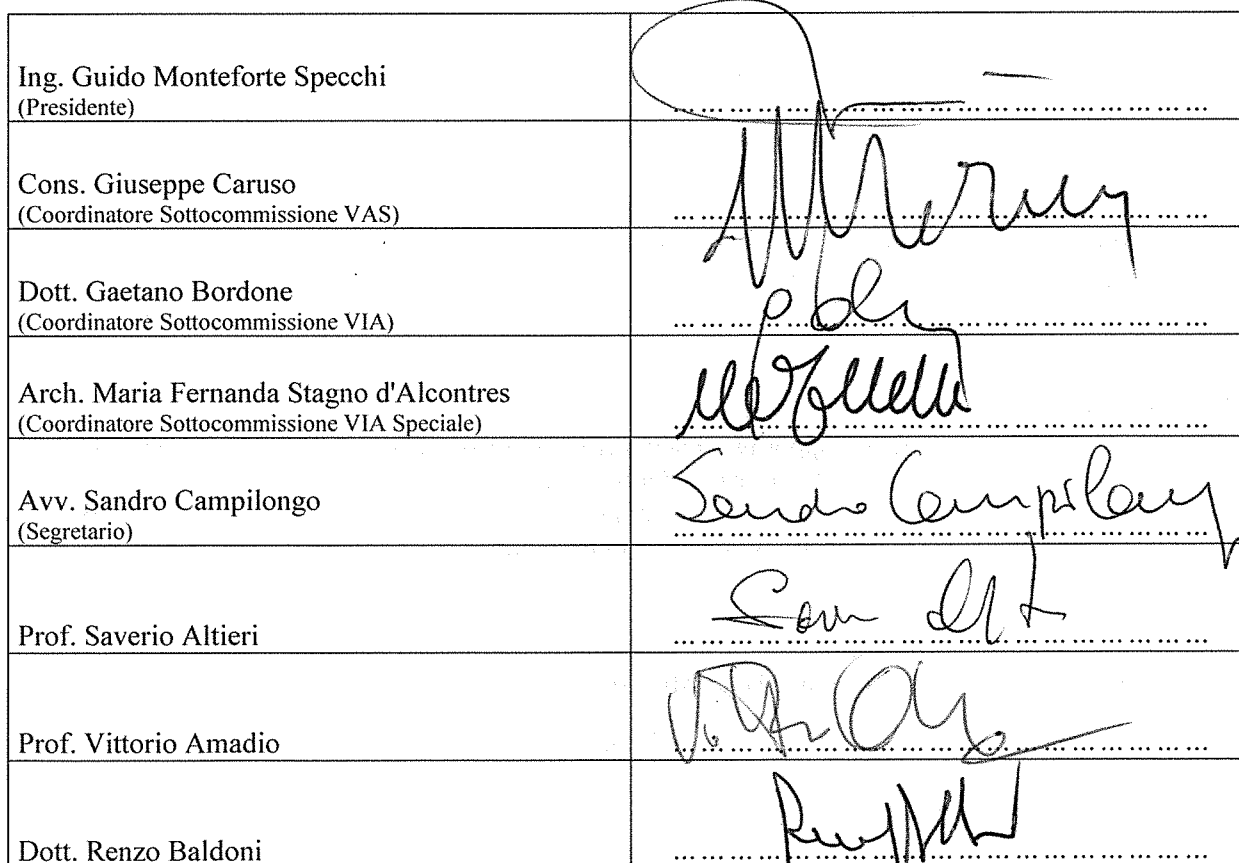 Ing. Guido Monteforte Specchi
(Presidente)
Cons. Giuseppe Caruso
(Coordinatore Sottocommissione VAS)
Dott. Gaetano Bordone
(Coordinatore Sottocommissione VIA)
Arch. Maria Fernanda Stagno d'Alcontres
(Coordinatore Sottocommissione VIA Speciale)
Avv. Sandro Campilongo
(Segretario)
Sandro Campilong
Prof. Saverio Altieri
Prof. Vittorio Amadio
Dott. Renzo Baldoni